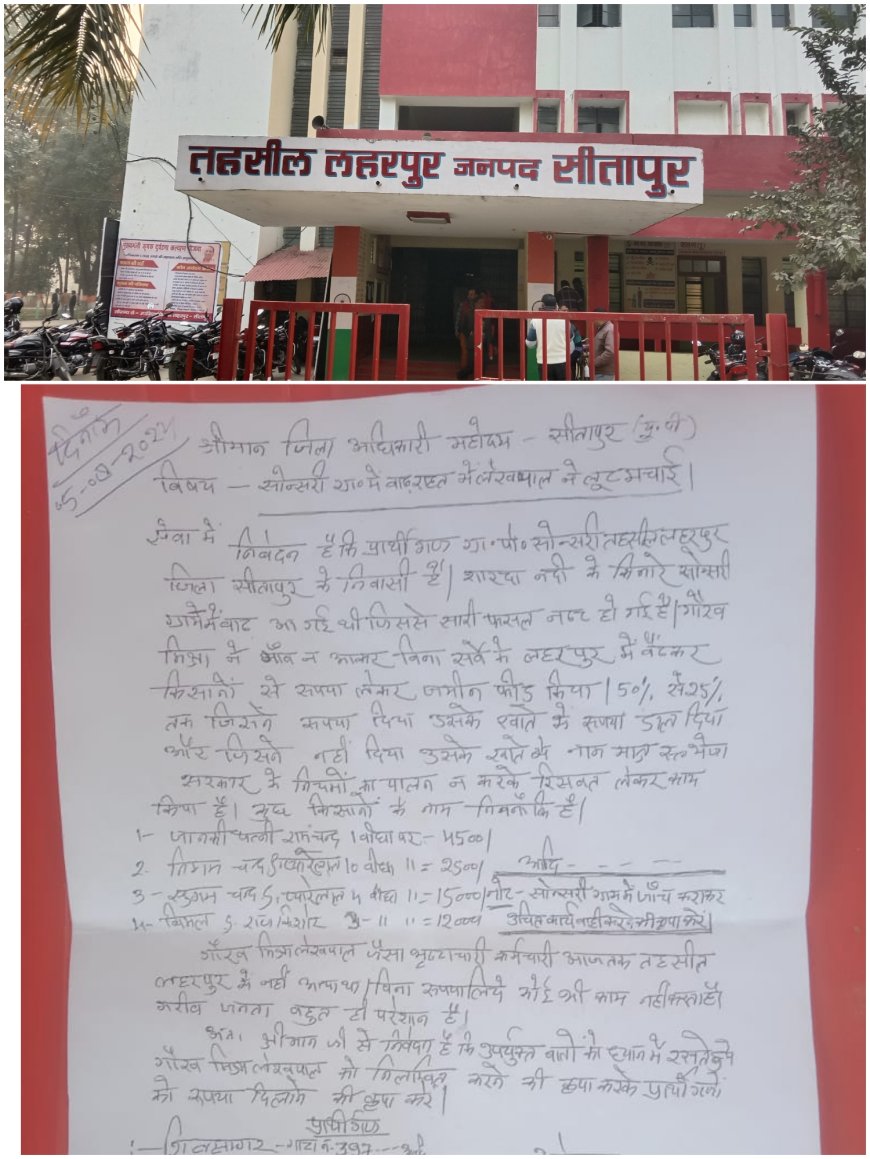 तहसील लहरपुर जनपद सीतापुर
मुख्यमंत्री कृषक दुर्घटना कल्याण योजना
दिनाँक
श्रीमान जिला अधिकारी महोदय - सीतापुर (यू.पी)
विषय - सोन्सरी ग्रा० में बाढ़ राहत में लेखपाल ने लूट मचाई |
सेवा में
निवेदन है कि प्रार्थीगण ग्रा. पो० सोन्सरी तहसील लहरपुर
जिला सीतापुर के निवासी हैं | शारदा नदी के किनारे सोन्सरी
ग्राम में बाढ आ गई थी जिससे सारी फसल नष्ट हो गई है | गौरव
मिश्रा ने गाँव न आकर बिना सर्वे के लहरपुर में बैठकर
किसानों से रुपया लेकर जमीन फीड किया | 50% से 25%
तक जिसने रुपया दिया उसके खाते में रुपया डाल दिया
और जिसने नहीं दिया उसके खाते में नाम मात्र भेजा
सरकार के नियमों का पालन न करके रिसवत लेकर काम
किया है | कुछ किसानों के नाम निम्न है |
1- जानकी पत्नी रामचन्द्र 1 बीघा पर - 4500 |
2. निगम चन्द्र S. प्यारेलाल 10 बीघा " = 2500 | आदि - - - - -
3- चन्द्र S. प्यारेलाल 4 बीघा " = 15000 | नोट - सोन्सरी ग्राम में जाँच कराकर
4- S. राज किशोर 3 - " " = 12000 उचित कार्यवाही करने की कृपा करें |
गौरव मिश्रा लेखपाल जैसा भ्रष्टाचारी कर्मचारी आजतक तहसील
लहरपुर में नहीं आया था | बिना रुपया लिये कोई भी काम नहीं करता है |
गरीब जनता बहुत ही परेशान है |
अतः श्रीमान जी से निवेदन है कि उपर्युक्त बातों को ध्यान में रखते हुये
गौरव मिश्रा लेखपाल को निलंबित करने की कृपा करके प्रार्थीगणों
को रुपया दिलाने की कृपा करें |
प्रार्थीगण
1- शिवसागर - गाटा नं. 397 ---